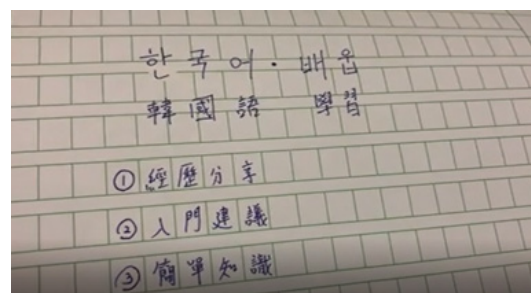 한국어·배웁
韓國語 學習
① 經歷分享
② 入門建議
③ 簡單知識